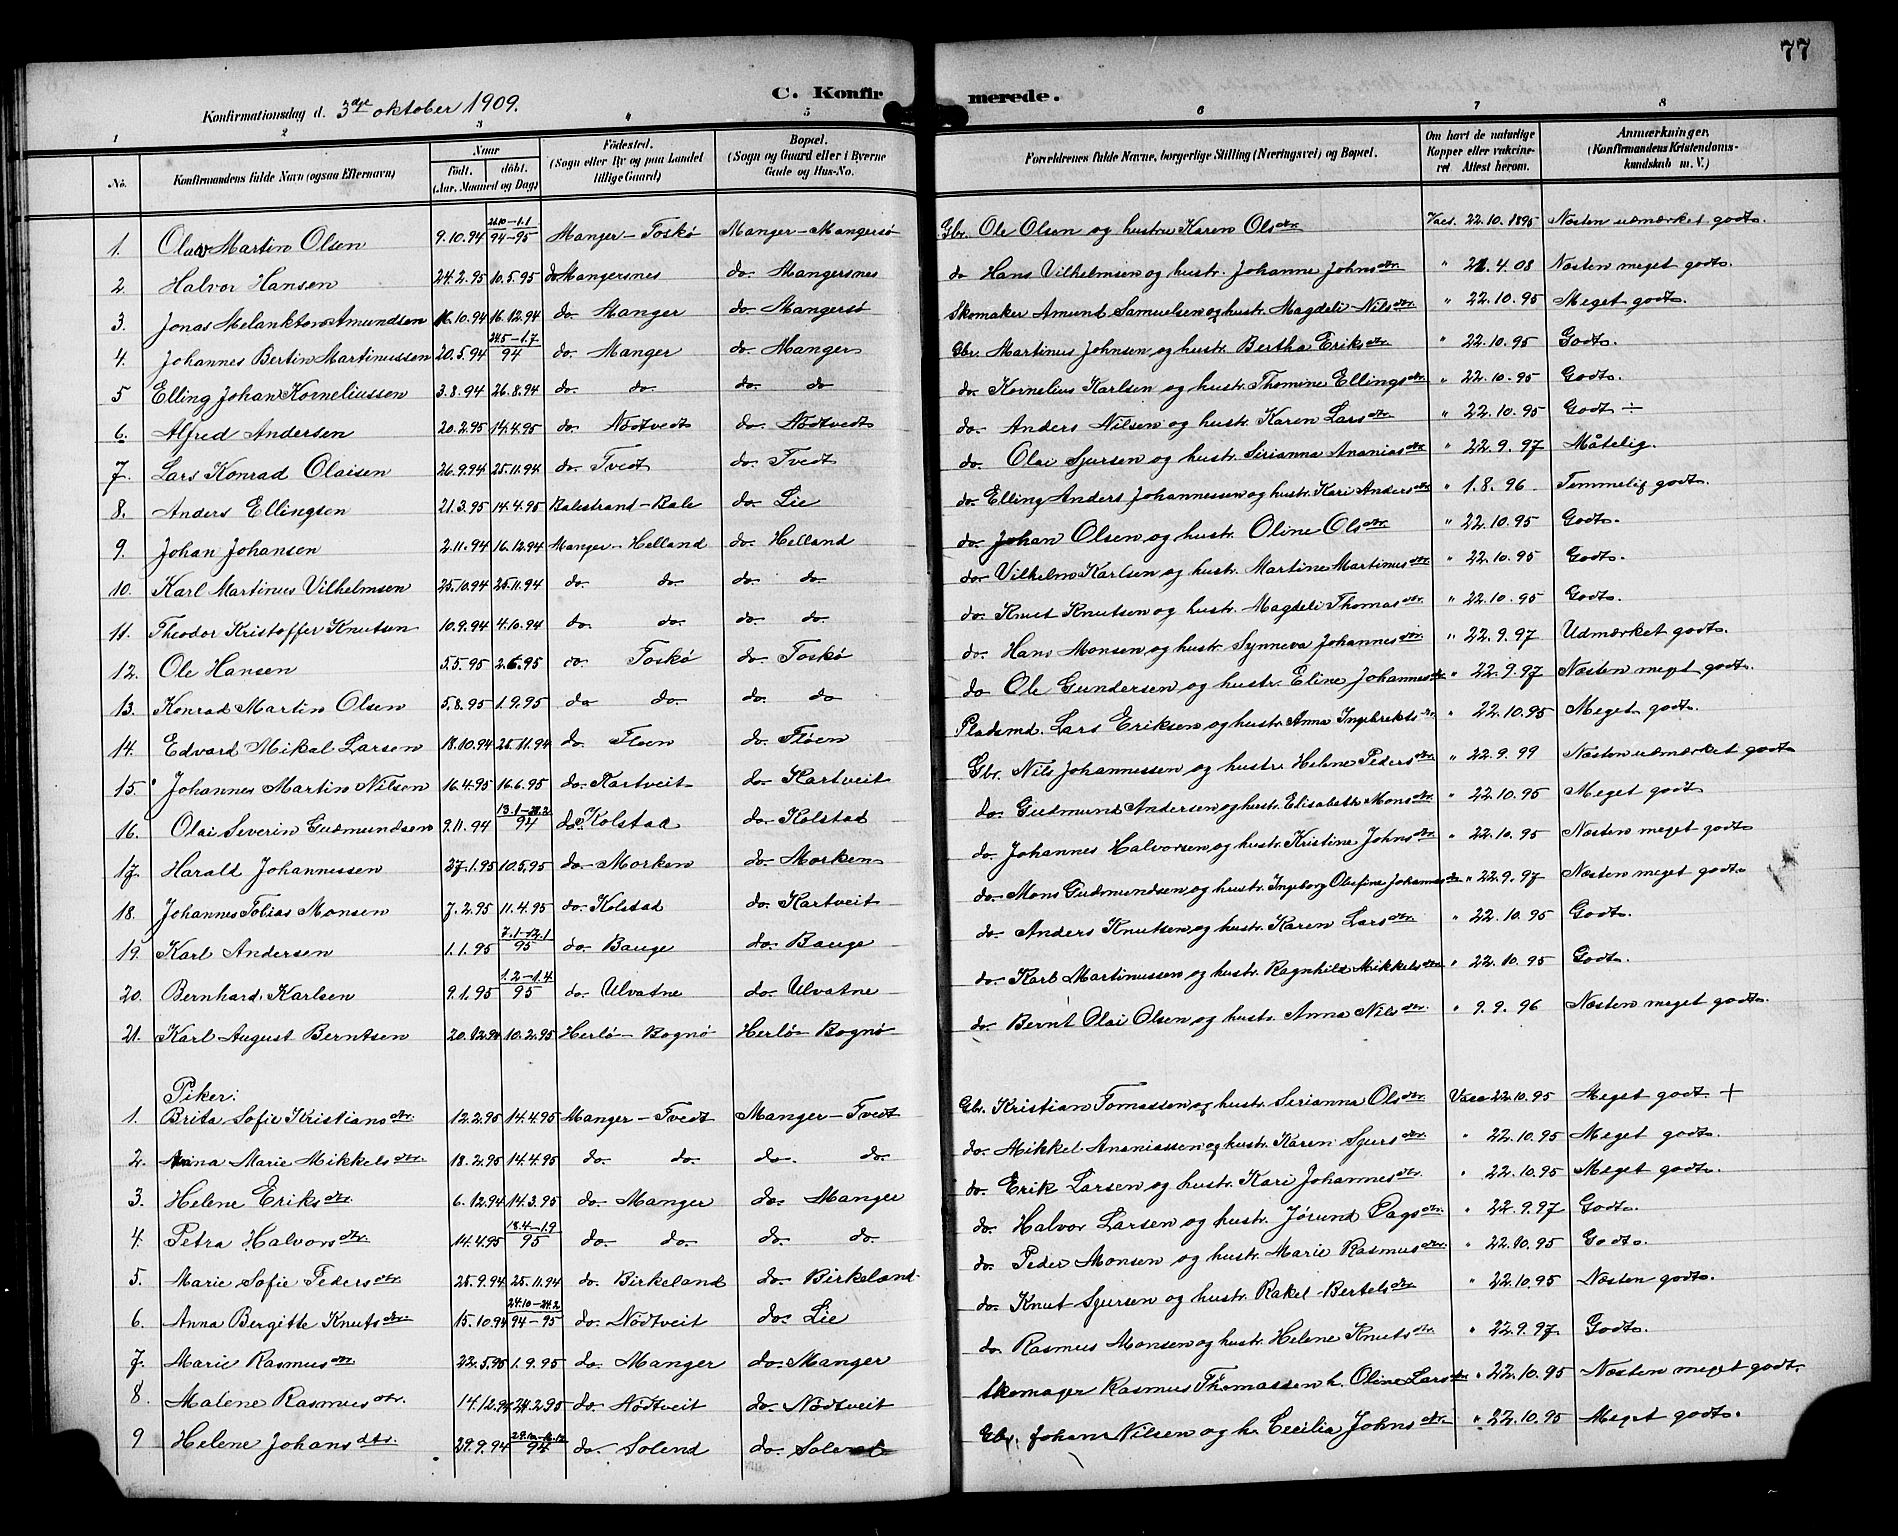 77
Konfirmationsdag d. 3die oktober 1909.
C. Konfirmerede.
1 2 3 4 5 6 7 8
No. Konfirmandens fulde Navn (ogsaa Efternavn) Naar født. døbt. (Aar, Maaned og Dag) Fødested. (Sogn eller By og paa Landet tillige Gaard) Bopæl. (Sogn og Gaard eller i Byerne Gade og Hus-No. Forældrenes fulde Navne, borgerlige Stilling (Næringsvei) og Bopæl. Om havt de naturlige Kopper eller vakcineret Attest herom. Anmærkninger, (Konfirmandens Kristendomskundskab m. V.)
1. Olav Martin Olsen 9.10.94 26.10–1.1 94–95 Manger–Toskø Manger–Mangersø Gbr. Ole Olsen og hustru Karen Olsdtr. Vacs. 22.10.1895 Næsten udmærket godt.
2. Halvor Hansen 24.2.95 10.5.95 do Mangersnes do. Mangersnes do Hans Vilhelmsen og hustr. Johanne Johnsdtr. " 21.4.08 Næsten meget godt.
3. Jonas Melankton Amundsen 16.10.94 16.12.94 do. Manger do. Mangersø Skomaker Amund Samuelsen og hustr. Magdeli Nilsdtr. " 22.10.95 Meget godt.
4. Johannes Bertin Martinussen 20.5.94 24.5–1.7 94 do. Manger do. Manger Gbr. Martinus Johnsen og hustr. Bertha Eriksdtr. " 22.10.95 Godt.
5 Elling Johan Korneliussen 3.8.94 26.8.94 do. do. do. do do. Kornelius Karlsen og hustr. Thomine Ellingsdtr. " 22.10.95 Godt.
6. Alfred Andersen 20.2.95 14.4.95 do. Nødtvedt do. Nødtvedt do. Anders Nilsen og hustr. Karen Larsdtr. " 22.10.95 Godt ÷
7. Lars Konrad Olaisen 26.9.94 25.11.94 do. Tvedt do. Tvedt do. Olai Sjursen og hustr. Sirianna Ananiasdtr. " 22.9.97 Måtelig.
8. Anders Ellingsen 21.3.95 14.4.95 Balestrand–Bale do. Lie do. Elling Anders Johannessen og hustr. Kari Andersdtr. " 1.8.96. Temmelig godt.
9. Johan Johansen 2.11.94 16.12.94 Manger–Helland do. Helland do. Johan Olsen og hustr. Oline Olsdtr. " 22.10.95 Godt.
10. Karl Martinus Vilhelmsen 25.10.94 25.11.94 do. do. do. do do. Vilhelm Karlsen og hustr. Martine Martinusdtr. " 22.10.95 Godt.
11. Theodor Kristoffer Knutsen 10.9.94 4.10.94 do. do. do. do do. Knut Knutsen og hustr. Magdeli Thomasdtr. " 22.10.95 Godt.
12. Ole Hansen 5.5.95 2.6.95 do Toskø do. Toskø do. Hans Monsen og hustr. Synneva Johannesdtr. " 22.9.97 Udmærket godt.
13. Konrad Martin Olsen 5.8.95 1.9.95 do do. do. do do Ole Gundersen og hustr. Eline Johannesdtr. " 22.9.97 Næsten meget godt.
14. Edvard Mikal Larsen 18.10.94 25.11.94 do. Fløen do. Fløen Pladsmd. Lars Eriksen og hustr. Anna Ingebrektsdtr. " 22.10.95 Meget godt.
15. Johannes Martin Nilsen 16.4.95 16.6.95 do. Kartveit do. Kartveit Gbr. Nils Johannessen og hustr. Helene Pedersdtr. " 22.9.99 Næsten udmærket godt
16. Olai Severin Gudmundsen 9.11.94 94 do. Kolstad do. Kolstad do. Gudmund Andersen og hustr. Elisabeth Monsdtr. " 22.10.95 Meget godt
17. Harald Johannessen 27.1.95 10.5.95 do. Morken do. Morken do. Johannes Halvorsen og hustr. Kristine Johnsdtr. " 22.10.95 Næsten meget godt
18. Johannes Tobias Monsen 7.2.95 11.4.95 do. Kolstad do. Kartveit do. Mons Gudmundsen og hustr. Ingeborg Olufine Johannesdtr. " 22.9.97 Næsten meget godt
19. Karl Andersen 1.1.95 7.1–12.1 95 do. Bauge do. Bauge do. Anders Knutsen og hustr. Karen Larsdtr. " 22.10.95 Godt.
20. Bernhard Karlsen 9.1.95 1.2–1.4. 95 do. Ulvatne do. Ulvatne do. Karl Martinussen og hustr. Ragnhild Mikkelsdtr. " 22.10.95 Godt.
21. Karl August Berntsen 20.12.94 10.2.95 Herlø–Bognø Herlø–Bognø do. Bernt Olai Olsen og hustr. Anna Nilsdtr. " 9.9.96 Næsten meget godt.
Piker:
1. Brita Sofie Kristiansdtr. 12.2.95 14.4.95 Manger–Tvedt Manger–Tvedt Gbr. Kristian Tomassen og hustr. Sirianna Olsdtr. Vacc 22.10.95 Meget godt +
2. Anna Marie Mikkelsdtr. 18.2.95 14.4.95 do. do. do. do do. Mikkel Ananiassen og hustr. Karen Sjursdtr. " 22.10.95 Meget godt.
3. Helene Eriksdtr. 6.12.94 14.3.95 do. Manger do. Manger do. Erik Larsen og hustr. Kari Johannesdtr. " 22.10.95 Meget godt.
4. Petra Halvorsdtr. 14.4.95 18.4–1.9 95 do. do. do. do. do. Halvor Larsen og hustr. Jørund Dagsdtr. " 22.9.97 Godt.
5. Marie Sofie Pedersdtr. 25.9.94 25.11.94 do. Birkeland do. Birkeland do. Peder Monsen og hustr. Marie Rasmusdtr. " 22.10.95 Godt.
6. Anna Bergitte Knutsdtr. 15.10.94 24.10–24.2 94–95 do. Nødtveit do. Lie do. Knut Sjursen og hustr. Rakel Bertelsdtr. " 22.10.95 Næsten godt.
7. Marie Rasmusdtr. 22.5.95 1.9.95 do. Manger do. Manger do. Rasmus Monsen og hustr. Helene Knutsdtr. " 22.9.97. Godt.
8. Malene Rasmusdtr. 14.12.94 24.2.95 do. Nødtveit do. Nødtveit Skomager Rasmus Thomassen h. Oline Larsdtr. " 22.10.95 Næsten meget godt.
9 Helene Johansdtr. 29.9.94 94 do. Solend do. Gbr. Johan Nilsen og h. Cecilia Johnsdtr. " 22.10.95 Meget godt.